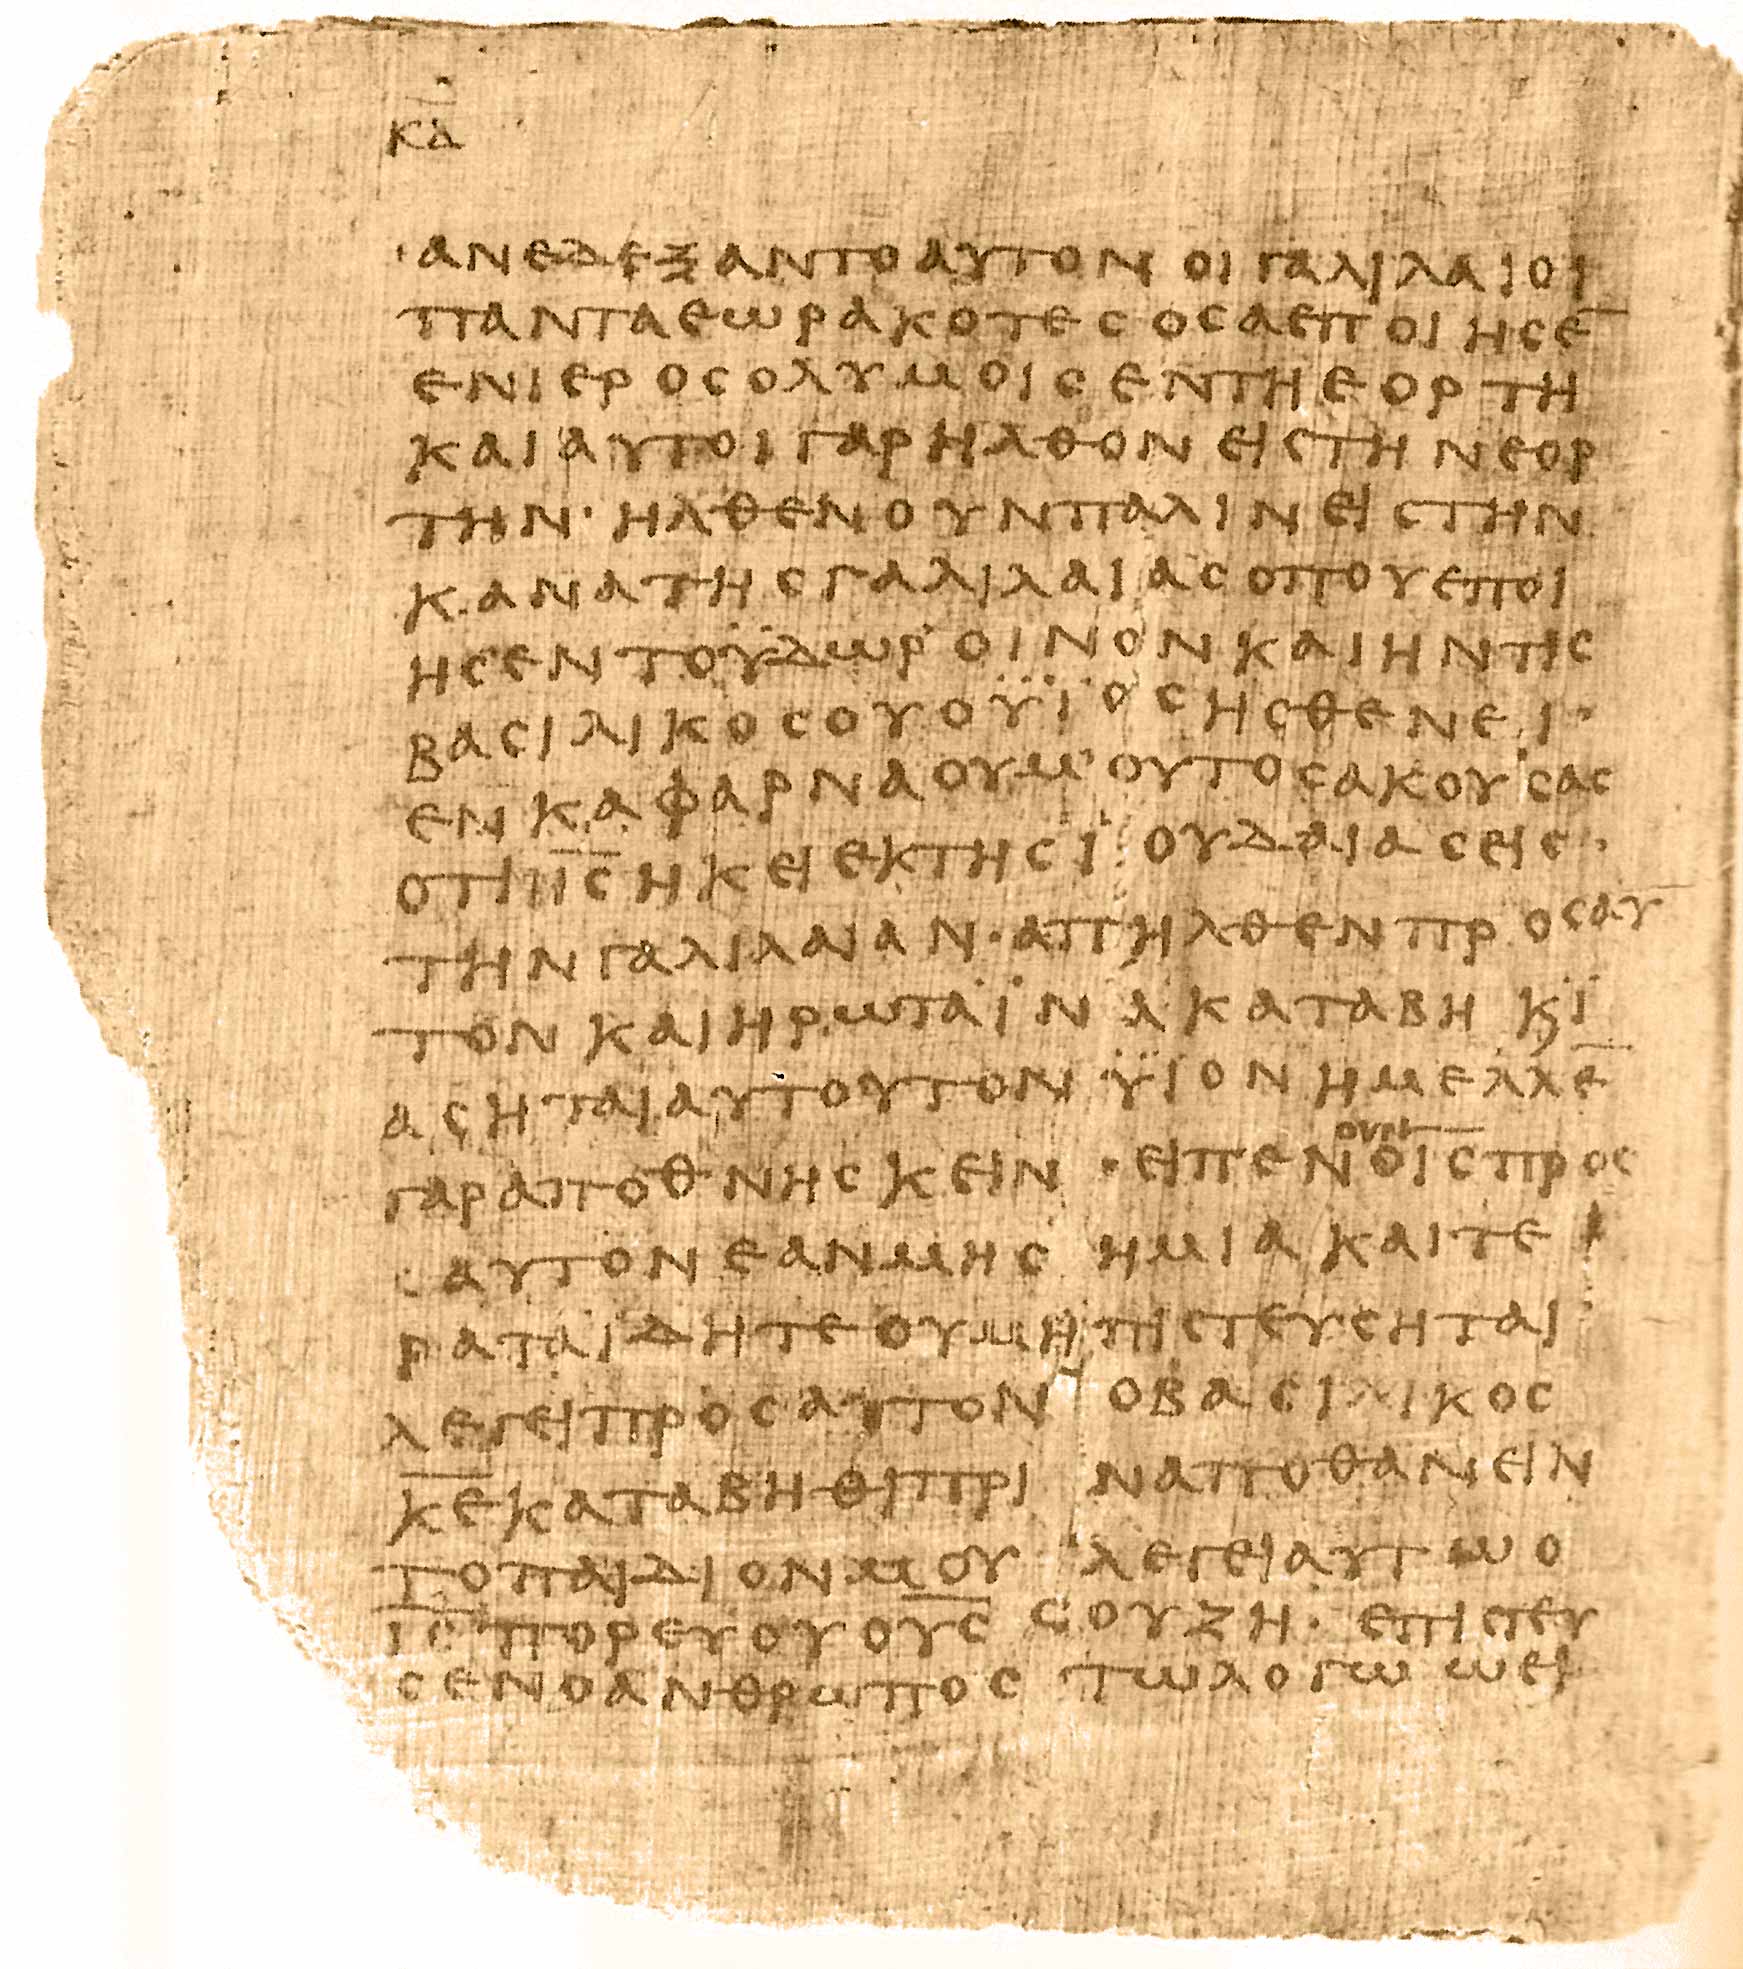 κ̅α̅
·ανεδεξαντοαυτονοιγαλιλαιοι
πανταεωρακοτεςοςαεποιησε̅
ενιεροςολυμοιςεντηεορτη
καιαυτοιγαρηλθονειςτηνεορ
την·ηλθενουνπαλινειςτην
κανατηςγαλιλαιαςοπουεποι
ησεντοϋδωρ᾽οινονκαιηντις
βαςιλικοςουοϋϊοςηςθενει·
ενκαφαρναουμ᾽ουτοςακουσας
οτιι̅ς̅ηκειεκτηςϊουδαιαςεις·
τηνγαλιλαιαν·απηλθενπροςαυ
τονκαιηρωταϊνακαταβηκϊ
αςηταιαυτουτονϋιονημελλε̅
γαραποθνηςκειν·ειπεν\ουν/οι̅ς̅προς
αυτονεανμηςημιακαιτε
ραταιδητεουμηπιςτευςηται
λεγειπροςαυτονοβαςιλικος
κ̅ε̅καταβηθιπριναποθανειν
τοπαιδιονμουλεγειαυτωο
ι̅ς̅πορευουου̅ς̅ςουζη·επιςτευ
ςενοανθρωποςτωλογωωει